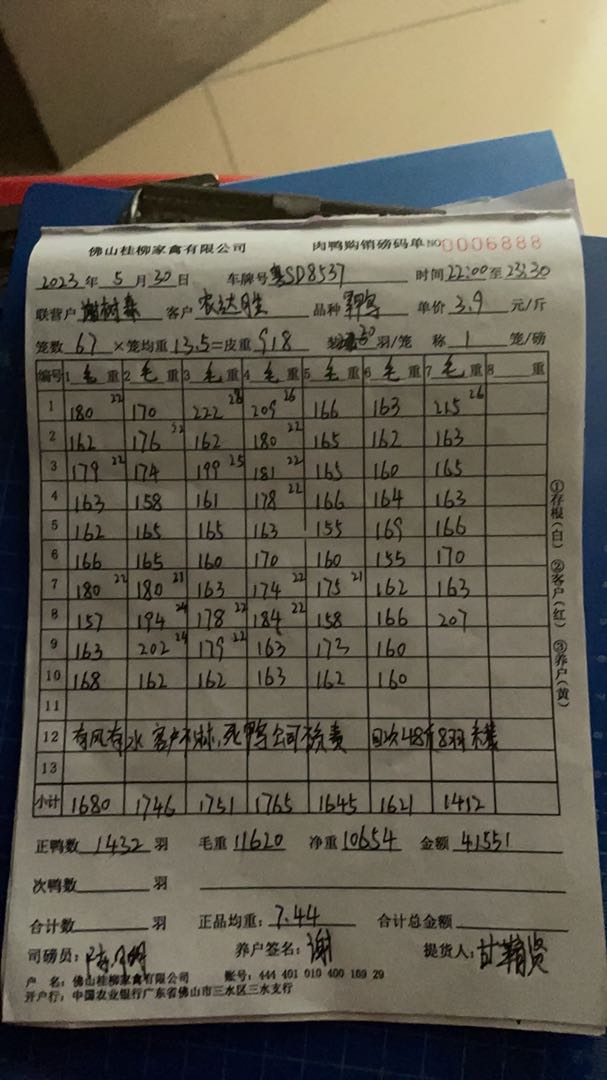 佛山桂柳家禽有限公司 肉鸭购销磅码单 NO 0006888
2023年 5月 30日 车牌号 粤SD8537 时间 22:00至 23:30
联营户 谢树森 客户 农达胜 品种 单价 3.9 元/斤
笼数 67 ×笼均重 13.5=皮重 918 羽/笼 称 1 笼/磅
编号 1 毛 重 2 毛 重 3 毛 重 4 毛 重 5 毛 重 6 毛 重 7 毛 重 8 重
1 180 22 170 222 28 209 26 166 163 215 26
2 162 176 22 162 180 22 165 162 163
3 179 22 174 199 25 181 22 165 160 165
4 163 158 161 178 22 166 164 163
5 162 165 165 163 155 169 166
6 166 165 160 170 160 155 170
7 180 22 180 21 163 174 22 175 21 162 163
8 157 194 24 178 22 184 22 158 166 207
9 163 202 24 179 22 163 173 160
10 168 162 162 163 162 160
11
12 有风有水 客户不淋,死鸭公司不负责 48斤8羽
13
小计 1680 1746 1751 1765 1645 1621 1412
正鸭数 1432 羽 毛重 11620 净重 10654 金额 41551
次鸭数 羽
合计数 羽 正品均重: 7.44 合计总金额
司磅员: 养户签名: 谢 提货人: 甘精贤
户 名: 佛山桂柳家禽有限公司 账号: 444 401 010 400 169 29
开户行: 中国农业银行广东省佛山市三水区三水支行
①存根(白) ②客户(红) ③养户(黄)